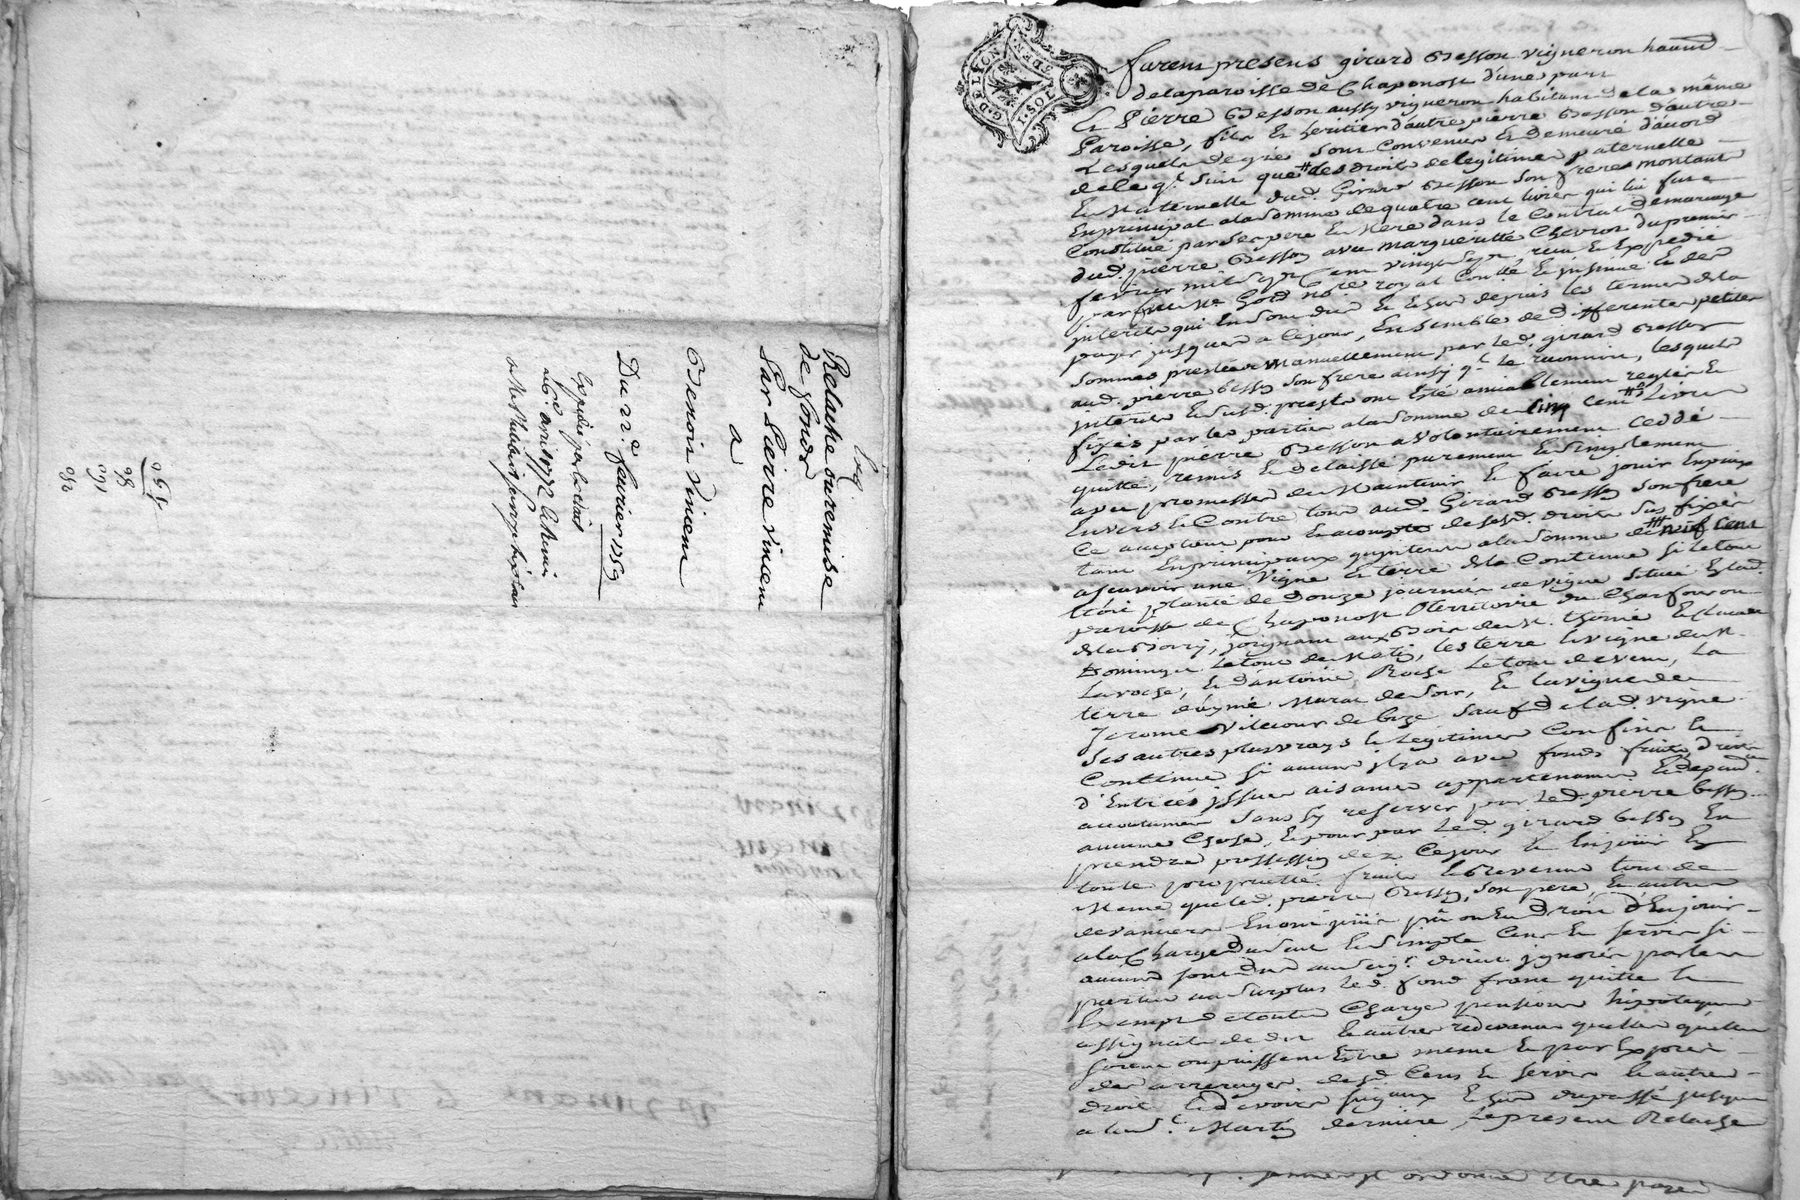 bez
Relache ou remise
de fonds
Par Pierre Vincent
a
Benoist Vincent
Du 22e. fevrier 1759
Expedié
avril 1772
G. DE LYON
1. SOL
DEN.
furent presens girard Besson vigneron habitt.
de la paroisse de Chaponost d'une part
Et Pierre Besson aussy vigneron habitant de la même
Paroisse, fils et heritier d'autre pierre Besson d'autre
Lesquels de gré sont convenus et demeuré d'acord
de ce q. suit que les droits de legitimes paternelle
et Maternelle dud. Girard Besson son frere montant
en principal a la somme de quatre cent livres qui lui fure
Constitué par ses pere et Mere dans le Contrat de mariage
dud. pierre Besson avec margueritte Chevron du premier
fevrier mil sept Cent vingt sept, receu et Expedié
par feu Me. Gord nore. royal Contlé et insinué et des
interets qui en sont dus et Echus depuis les termes de la
payer jusques a ce jour, Ensemble de differentes petites
sommes prestées manuellement par led. girard Besson
aud. pierre besson son frere ainsy q. le reconnoit, lesquels
interets et susd. prests ont été amiablement reglés et
fixés par les parties a la somme de cinq cent livres
Ledit pierre Besson a volontairement ceddé
quitté, remis et delaissé purement et simplement
avec promesse de Maintenir et faire jouir Envers
Envers et Contre tous aud. Girard Besson son frere
Ce acceptant pour Encompte de sesd. droits sus fixés
tant En principaux qu'interets a la somme de neuf cent
a scavoir une vigne et terre de la Contenue si le tout
étoit planté de Douze journées de vigne située En lad.
paroisse de Chaponost Territoire du Charfouron
joignant aux Bois de M. thomé
Dominique Le tout de Matin, les terre et vigne de M.
Laroche, et d'antoine Roche Le tout de vent, La
terre d'aymé Marat de soir, et la vigne de
Jerome Vilcour de bize sauf de lad. vigne
ses autres plus vrays et legitimes Confins et
Contenue si aucuns il y a avec fonds fruits, droits
d'Entrées issues aisances appartenances et depend.
accoutumés sans sy reserver par led. pierre besson
aucune Chose, et pour par led. girard besson En
prendre possession dez Ce jour et En jouir En
toute proprietté fruits et Revenus tout de
Meme que led. pierre Besson, son pere, et autres
devanciers En ont joüis pû ou En droit d'En jouir
a la Charge du seul et simple Cens et servis si
aucuns sont dus aux seigrs. directs ignorés par les
parties au surplus led. fond franc quitte et
Exempt de toutes Charges pensions hipoteques
assignats de dot et autres redevances quelles qu'elles
soient ou puissent Etre meme et par Exprès
des arrerages desd. Cens et servis et autres
droits et devoirs seigaux Echus du passé jusques
a la St. Martin derniere, Le present Relache